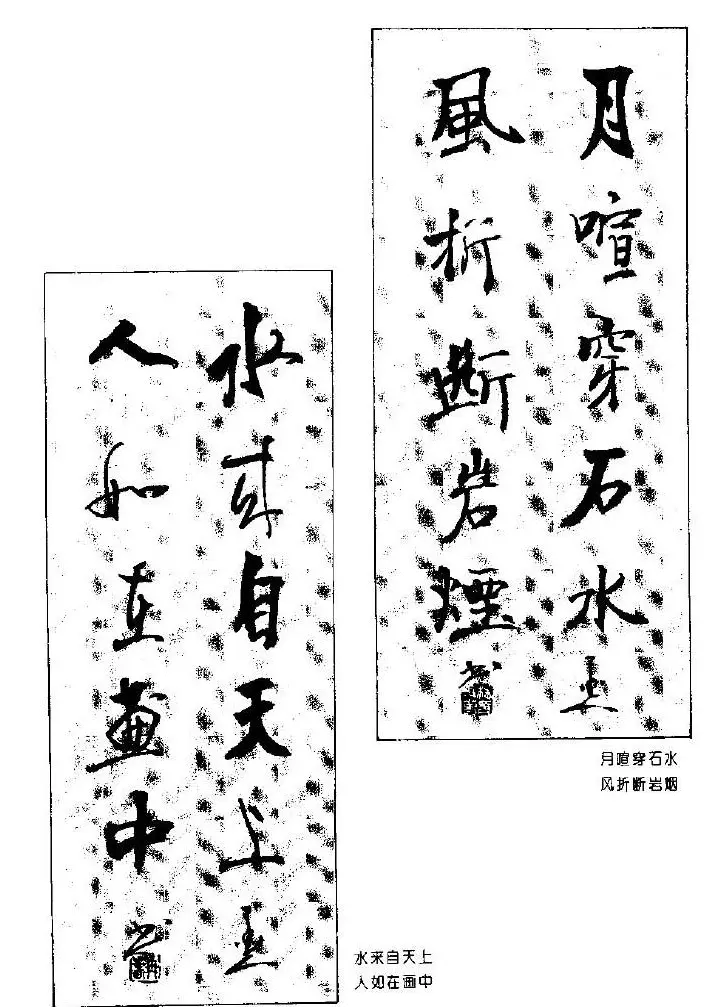 月喧穿石水
風折断岩煙
书
月喧穿石水
风折断岩烟
水来自天上
人如在畫中
书
水来自天上
人如在画中